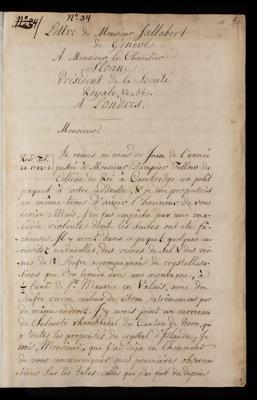 N.° 34
Lettre de Monsieur Jallabert
de Geneve
A Monsieur le Chevalier
Sloane
Président de la Société
Royale, &c. &c.
A Londres.
Monsieur
Je remis au mois de Juin de l'année
passée à Monsieur Fellow du
Collége du Roi à Cambridge, un petit
paquet à votre addresse, & je me proposois
en même tems d'avoir l'honneur de vous
écrire; Mais, j'en fus empêché par une ma-
ladie violente dont les suites ont été fa-
cheuses. Il y avoit dans ce paquet quelques cu-
riosités naturelles, des veines de Sel & des ver-
nes de Soufre accompagnées de crystallisa-
tions que l'on trouve dans une montagne, à
de S.t Maurice en Valais, avec du
Soufre vierge couleur de citron, extrêmement pur
au même endroit. J'y avois joint un morceau
de Selenite rhomboidal du Canton de Bern, qui
a toutes les propriétés du crystal d'Islande. Je
crois, Monsieur, que j'ai déja eu l'honneur
de vous communiquer mes premières observa-
tions sur les talcs, celles que j'ai fait ou depuis